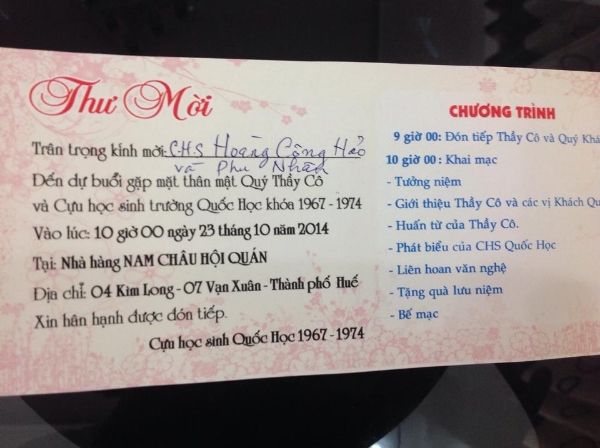 Thư Mời
Trân trọng kính mời: CHS Hoàng Công Hảo
và Phu Nhân
Đến dự buổi gặp mặt thân mật Quý Thầy Cô
và Cựu học sinh trường Quốc Học khóa 1967 - 1974
Vào lúc: 10 giờ 00 ngày 23 tháng 10 năm 2014
Tại: Nhà hàng NAM CHÂU HỘI QUÁN
Địa chỉ: 04 Kim Long - 07 Vạn Xuân - Thành phố Huế
Xin hân hạnh được đón tiếp.
Cựu học sinh Quốc Học 1967 - 1974
CHƯƠNG TRÌNH
9 giờ 00: Đón tiếp Thầy Cô và Quý
10 giờ 00 : Khai mạc
- Tưởng niệm
- Giới thiệu Thầy Cô và các vị Khách
- Huấn từ của Thầy Cô.
- Phát biểu của CHS Quốc Học
- Liên hoan văn nghệ
- Tặng quà lưu niệm
- Bế mạc